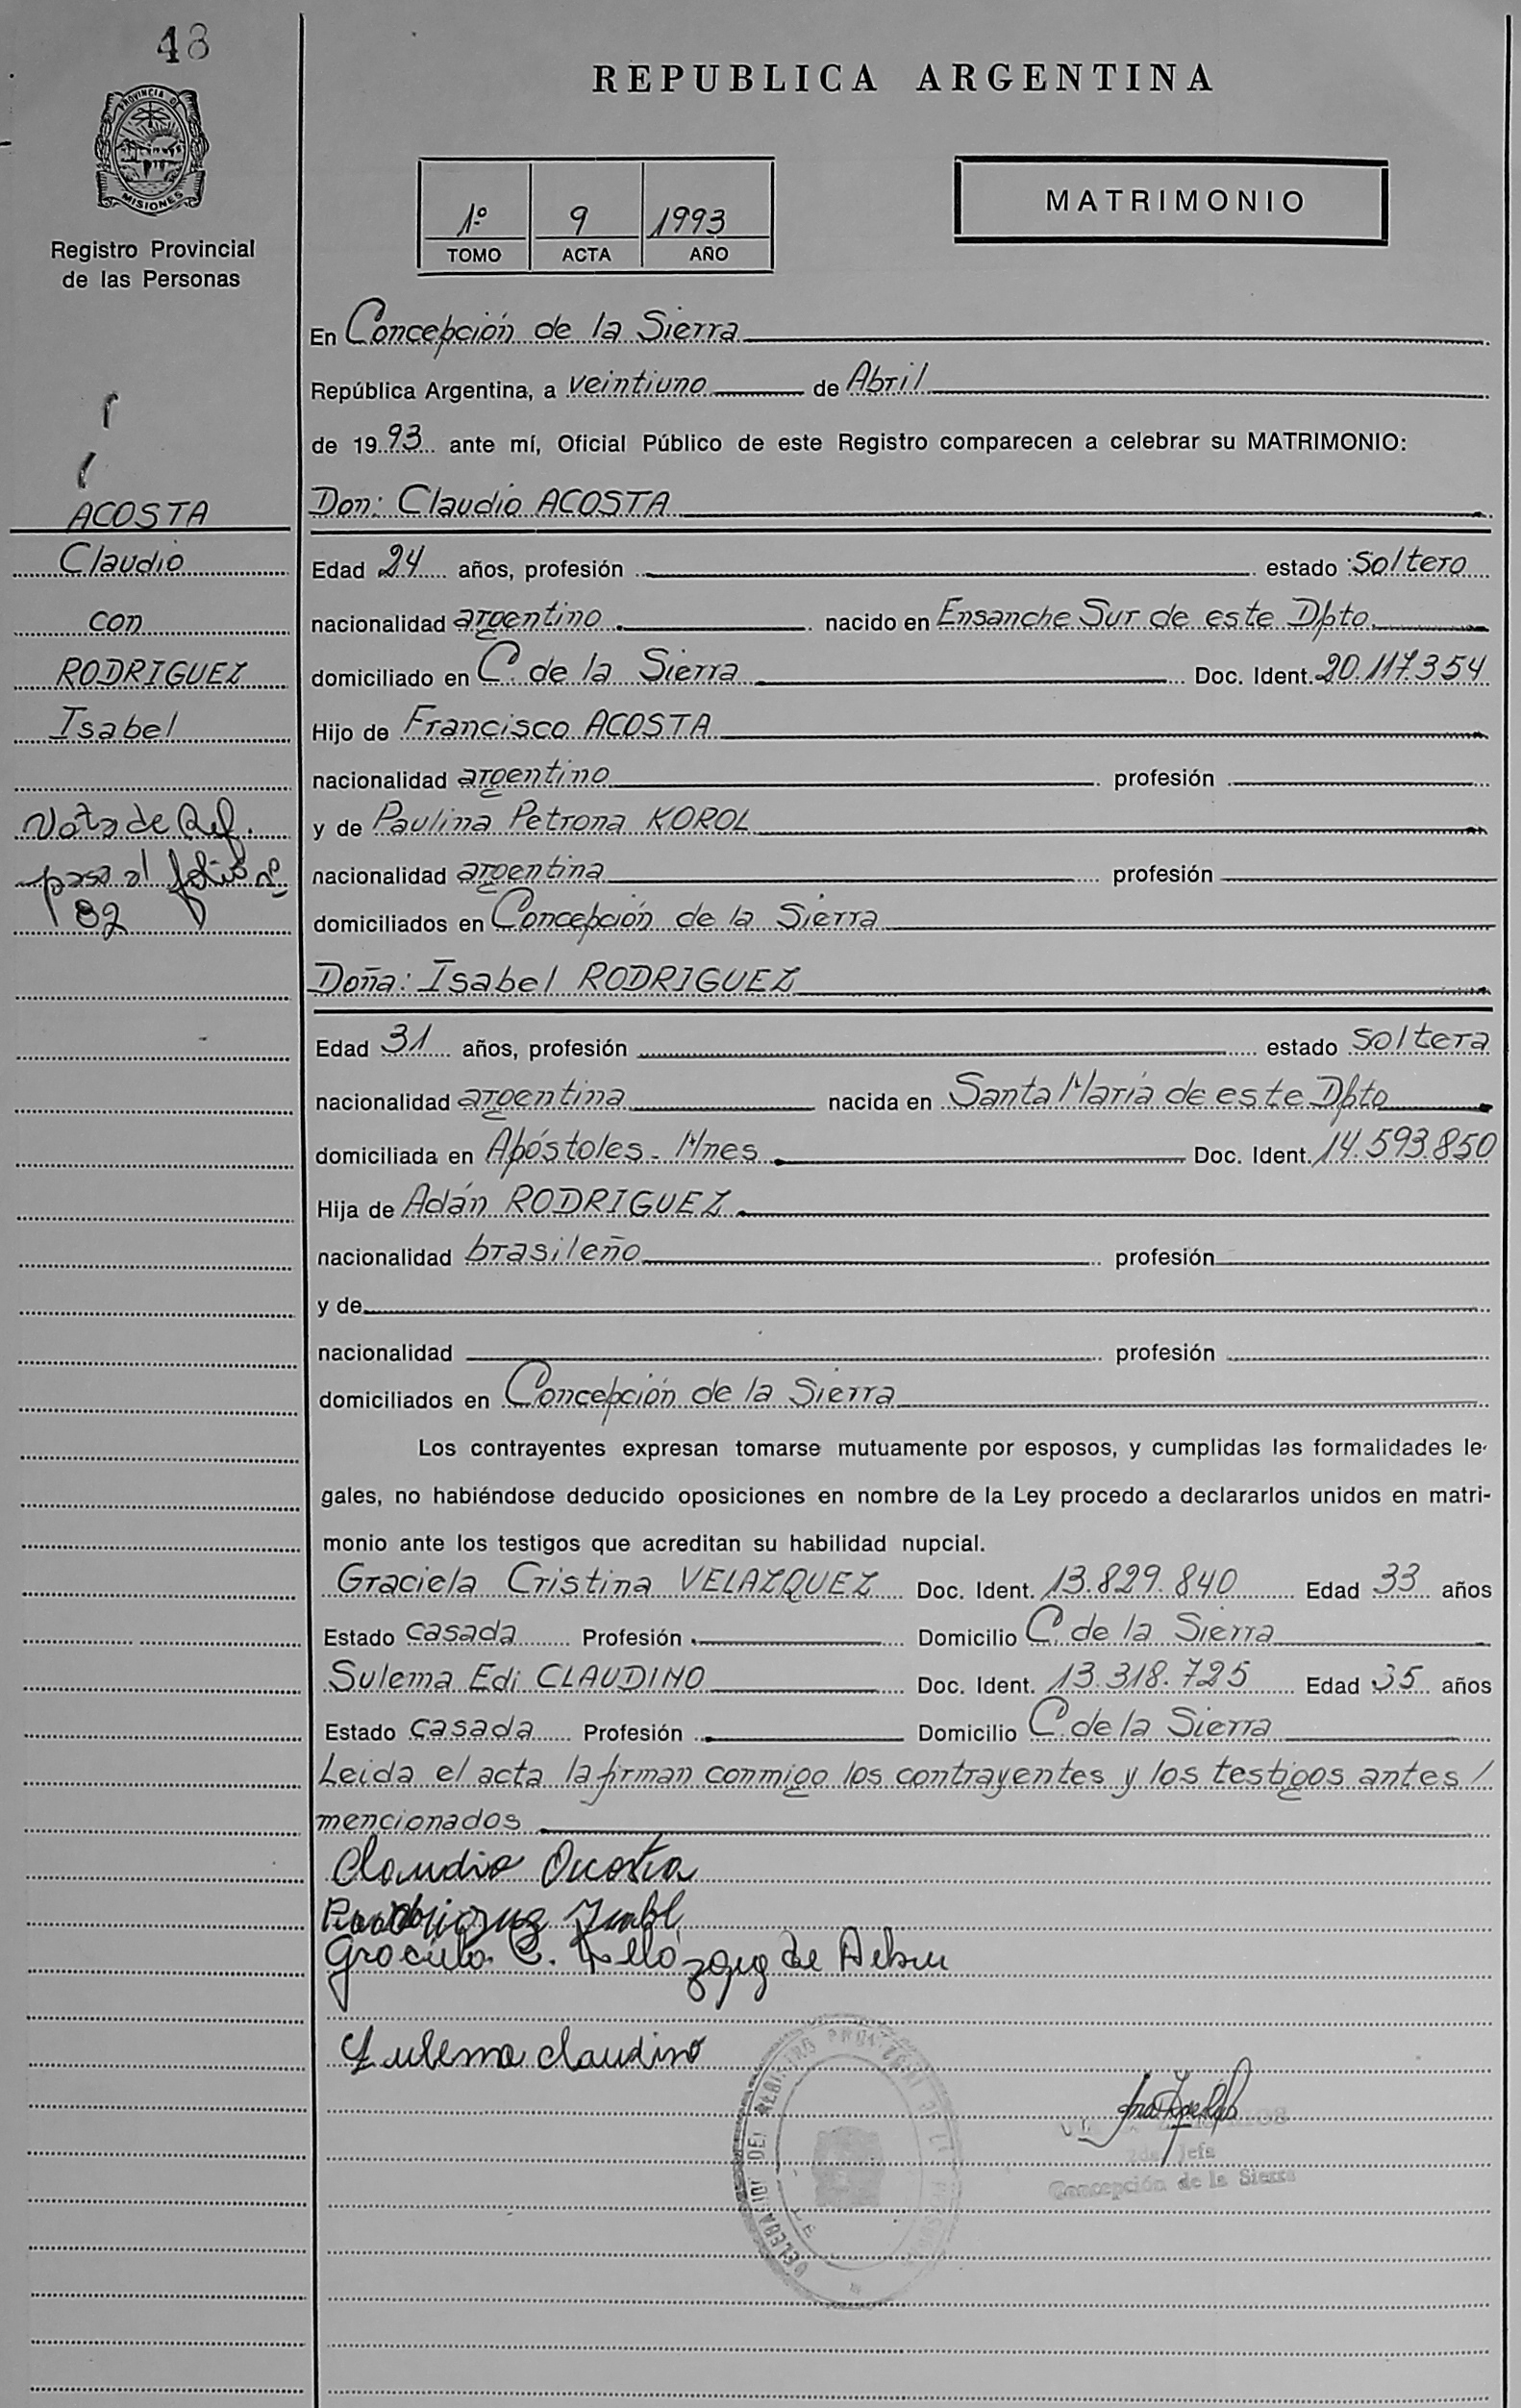 48
PROVINCIA D
MISIONES
Registro Provincial
de las Personas
REPUBLICA ARGENTINA
1º 9 1993
TOMO ACTA AÑO
MATRIMONIO
En Concepción de la Sierra
República Argentina, a veintiuno de Abril
de 1993 ante mí, Oficial Público de este Registro comparecen a celebrar su MATRIMONIO:
ACOSTA
Claudio
con
RODRIGUEZ
Isabel
Nota de Ref.
pasa al folio nº
182
Don: Claudio ACOSTA
Edad 24 años, profesión estado soltero
nacionalidad argentino nacido en Ensanche Sur de este Dpto
domiciliado en C. de la Sierra Doc. Ident. 20.117.354
Hijo de Francisco ACOSTA
nacionalidad argentino profesión
y de Paulina Petrona KOROL
nacionalidad argentina profesión
domiciliados en Concepción de la Sierra
Doña: Isabel RODRIGUEZ
Edad 31 años, profesión estado soltera
nacionalidad argentina nacida en Santa María de este Dpto
domiciliada en Apóstoles - Mnes Doc. Ident. 14.593.850
Hija de Adán RODRIGUEZ
nacionalidad brasileño profesión
y de
nacionalidad profesión
domiciliados en Concepción de la Sierra
Los contrayentes expresan tomarse mutuamente por esposos, y cumplidas las formalidades le-
gales, no habiéndose deducido oposiciones en nombre de la Ley procedo a declararlos unidos en matri-
monio ante los testigos que acreditan su habilidad nupcial.
Graciela Cristina VELAZQUEZ Doc. Ident. 13.829.840 Edad 33 años
Estado casada Profesión Domicilio C. de la Sierra
Sulema Edi CLAUDINO Doc. Ident. 13.318.725 Edad 35 años
Estado casada Profesión Domicilio C. de la Sierra
Leida el acta la firman conmigo los contrayentes y los testigos antes /
mencionados
Claudio Acosta
Rodriguez Isabel
Graciela C. Velázquez de
Zulema Claudino
2da Jefa
Concepción de la Sierra